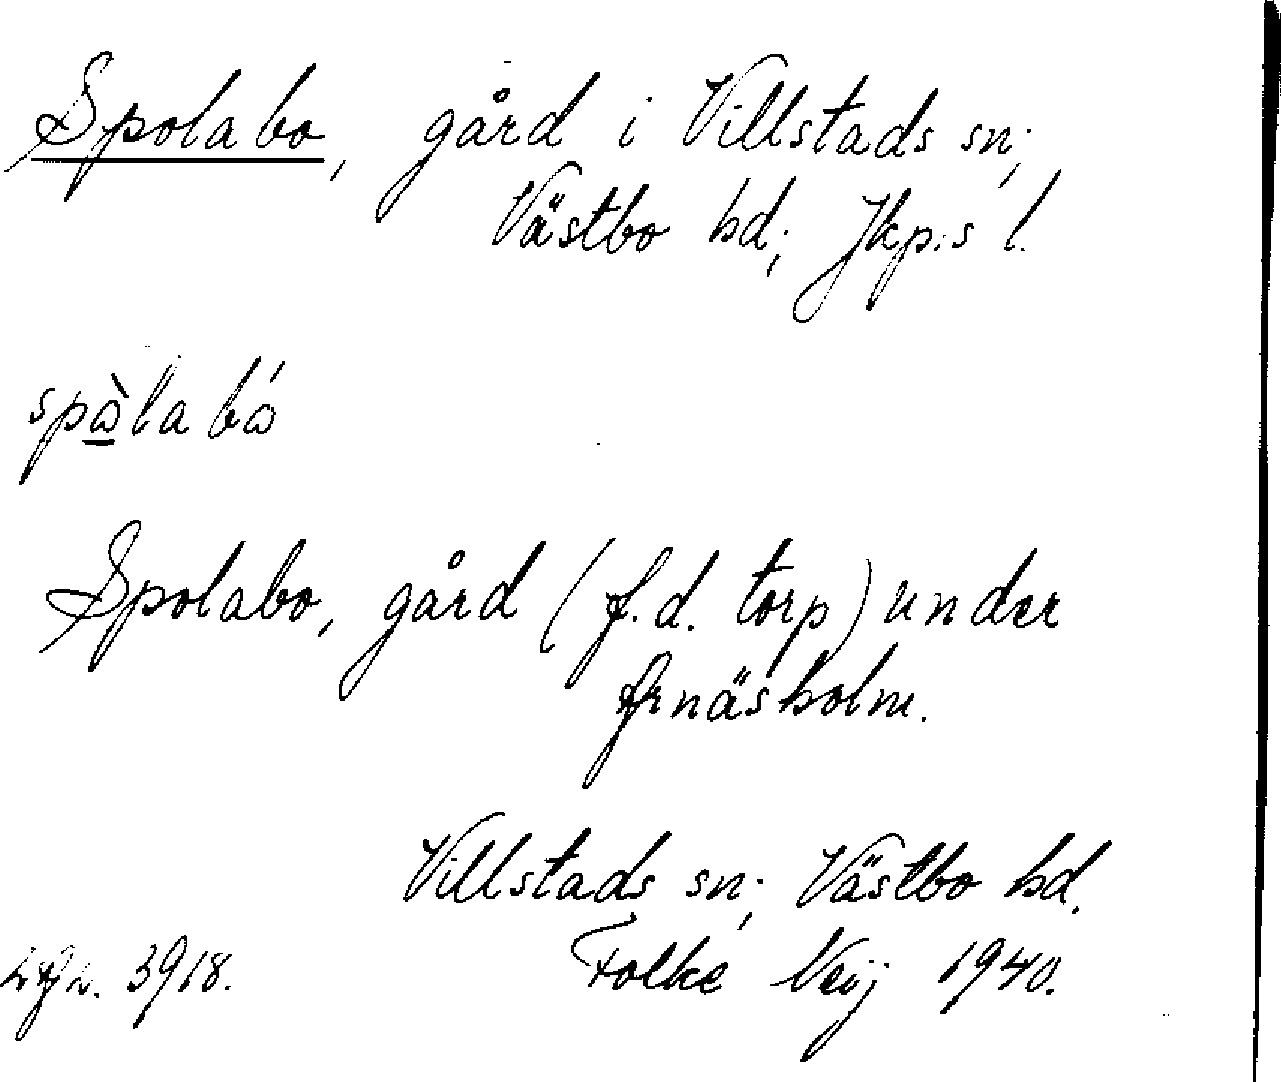 Spolabo, gård i Villstads sn;
Västbo hd; Jkp:s l.
spὼ̲la bώ
Spolabo, gård (f.d. torp) under
Arnäsholm.
Villstads sn; Västbo hd.
3918. Folke Neij 1940.